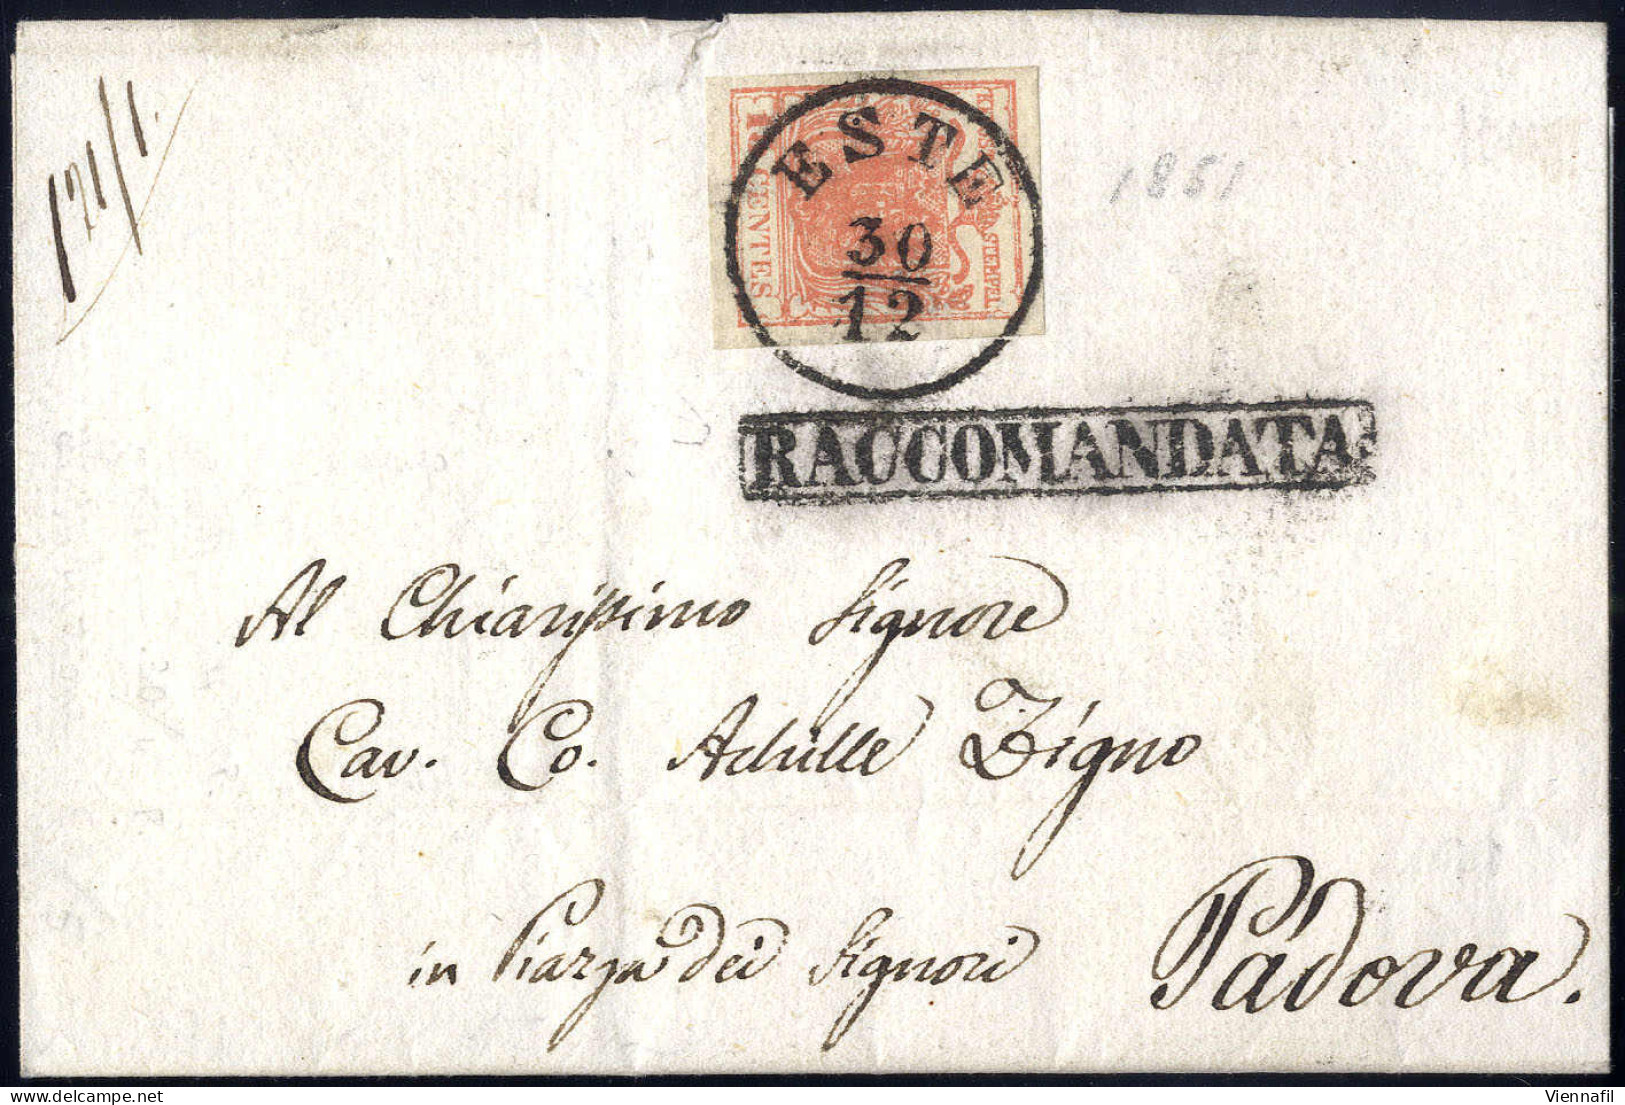 121/1.
15 CENTES
STEMPEL
ESTE
30
12
1851
RACCOMANDATA.
Al Chiarissimo Signore
Cav. Co. Achille Zigno
in Piazza dei Signori Padova.
Viennafil